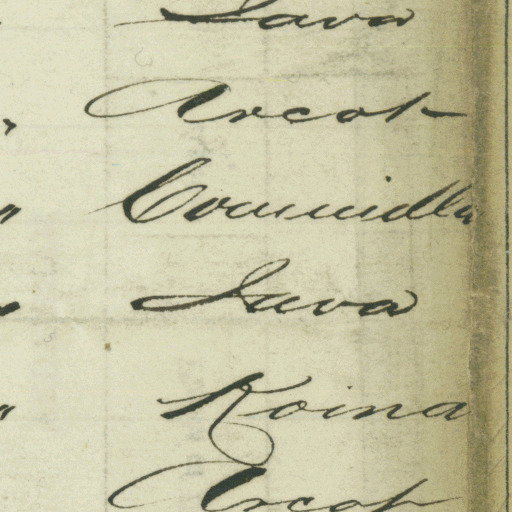 Java
Arcot
" Commidlla
" Java
" Koina
Arcot